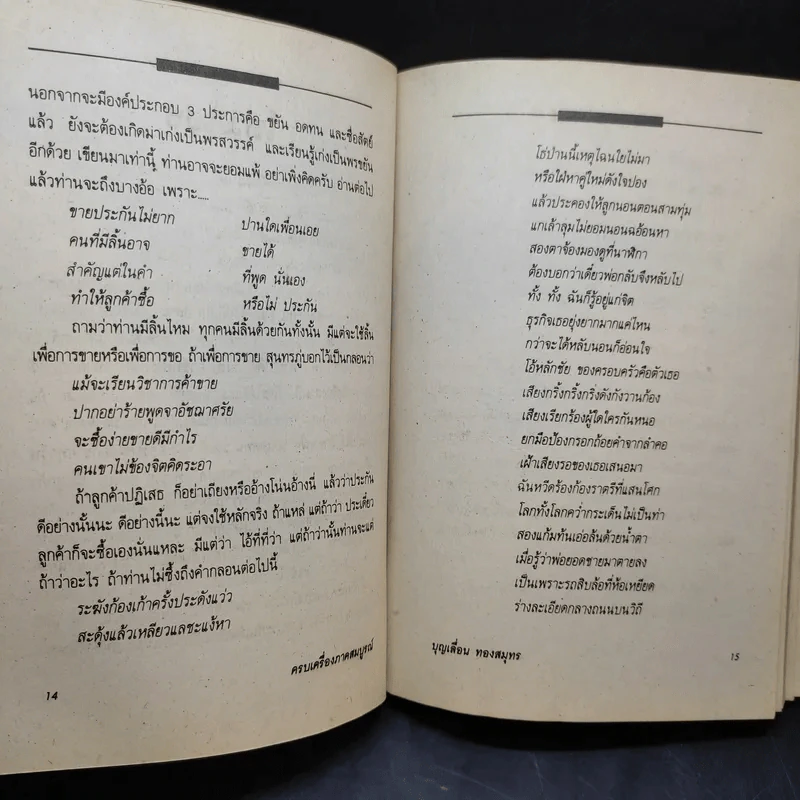 นอกจากจะมีองค์ประกอบ 3 ประการคือ ขยัน อดทน และซื่อสัตย์
แล้ว ยังจะต้องเกิดมาเก่งเป็นพรสวรรค์ และเรียนรู้เก่งเป็นพรขยัน
อีกด้วย เขียนมาเท่านี้ ท่านอาจจะยอมแพ้ อย่าเพิ่งคิดครับ อ่านต่อไป
แล้วท่านจะถึงบางอ้อ เพราะ.....
ขายประกันไม่ยาก ปานใดเพื่อนเอย
คนที่มีลิ้นอาจ ขายได้
สำคัญแต่ในคำ ที่พูด นั่นเอง
ทำให้ลูกค้าซื้อ หรือไม่ ประกัน
ถามว่าท่านมีลิ้นไหม ทุกคนมีลิ้นด้วยกันทั้งนั้น มีแต่จะใช้ลิ้น
เพื่อการขายหรือเพื่อการขอ ถ้าเพื่อการขาย สุนทรภู่บอกไว้เป็นกลอนว่า
แม้จะเรียนวิชาการค้าขาย
ปากอย่าร้ายพูดจาอัชฌาศรัย
จะซื้อง่ายขายดีมีกำไร
คนเขาไม่ข้องจิตคิดระอา
ถ้าลูกค้าปฏิเสธ ก็อย่าเถียงหรืออ้างโน่นอ้างนี่ แล้วว่าประกัน
ดีอย่างนั้นนะ ดีอย่างนี้นะ แต่จงใช้หลักจริง ถ้าแหล่ แต่ถ้าว่า ประเดี๋ยว
ลูกค้าก็จะซื้อเองนั่นแหละ มีแต่ว่า ไอ้ที่ที่ว่า แต่ถ้าว่านั้นท่านจะแต่
ถ้าว่าอะไร ถ้าท่านไม่ซึ้งถึงคำกลอนต่อไปนี้
ระฆังก้องเก้าครั้งประดังแว่ว
สะดุ้งแล้วเหลียวแลชะแง้หา
ครบเครื่องภาคสมบูรณ์
14
โธ่ป่านนี้เหตุไฉนใยไม่มา
หรือใฝ่หาคู่ใหม่ดังใจปอง
แล้วประคองให้ลูกนอนตอนสามทุ่ม
แกเล้าลุมไม่ยอมนอนฉอ้อนหา
สองตาจ้องมองดูที่นาฬิกา
ต้องบอกว่าเดี๋ยวพ่อกลับจึงหลับไป
ทั้ง ทั้ง ฉันก็รู้อยู่แก่จิต
ธุรกิจเธอยุ่งยากมากแค่ไหน
กว่าจะได้หลับนอนก็อ่อนใจ
โอ้หลักชัย ของครอบครัวคือตัวเธอ
เสียงกริ้งกริ้งกริ่งดังกังวานก้อง
เสียงเรียกร้องผู้ใดใครกันหนอ
ยกมือป้องกรอกถ้อยคำจากลำคอ
เฝ้าเสียงรอของเธอเสนอมา
ฉันหวีดร้องก้องราตรีที่แสนโศก
โลกทั้งโลกคว่ำกระเด็นไม่เป็นท่า
สองแก้มท้นเอ่อล้นด้วยน้ำตา
เมื่อรู้ว่าพ่อยอดชายมาตายลง
เป็นเพราะรถสิบล้อที่ห้อเหยียด
ร่างละเอียดกลางถนนบนวิถี
บุญเลื่อน ทองสมุทร
15